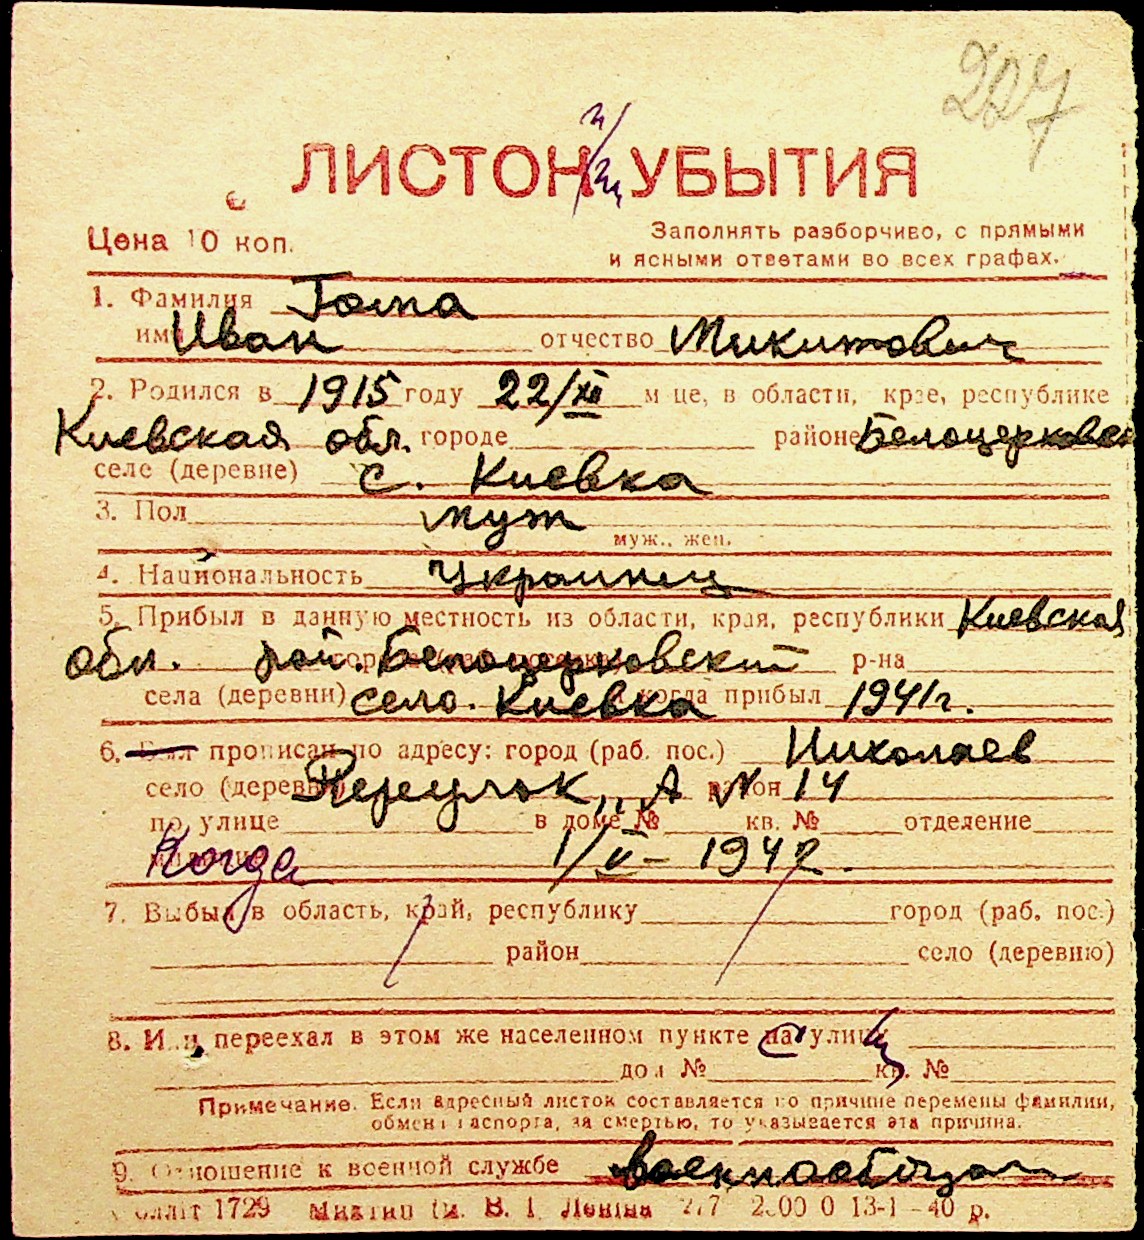 227
ЛИСТОК УБЫТИЯ
Цена 10 коп.
Заполнять разборчиво, с прямыми
и ясными ответами во всех графах.
1. Фамилия Гота
имя Иван отчество Микитович
2. Родился в 1915 году 22/XII м-це, в области, крае, республике
Киевская обл. городе районе Белоцерковск
селе (деревне) с. Киевка
3. Пол муж
муж., жен.
4. Национальность Украинец
5. Прибыл в данную местность из области, края, республики Киевская
обл. рай. Белоцерковский р-на
села (деревни) село. Киевка и когда прибыл 1941г.
6. Был прописан по адресу: город (раб. пос.) Николаев
село (деревня) Переулок „А N 14 район
по улице в доме № кв. № отделение
Когда 1/V - 1942.
7. Выбыл в область, край, республику город (раб. пос.)
район село (деревню)
8. Или переехал в этом же населенном пункте на улицу
дом № кв. №
Примечание. Если адресный листок составляется по причине перемены фамилии,
обмена паспорта, за смертью, то указывается эта причина.
9. Отношение к военной службе военнообязан
1729 В. І. Леніна 2/7 13-1-40 р.